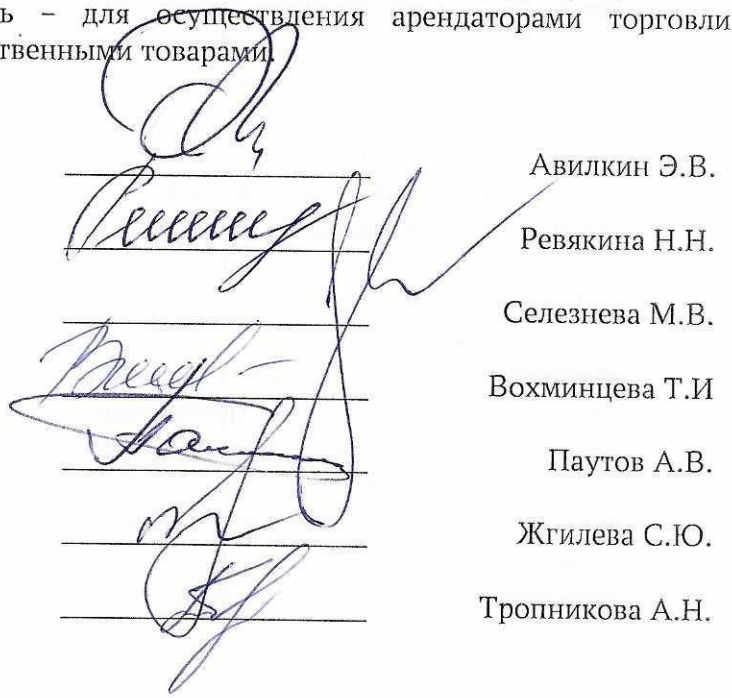 ь – для осуществления арендаторами торговли
твенными товарами.
Авилкин Э.В.
Ревякина Н.Н.
Селезнева М.В.
Вохминцева Т.И
Паутов А.В.
Жгилева С.Ю.
Тропникова А.Н.